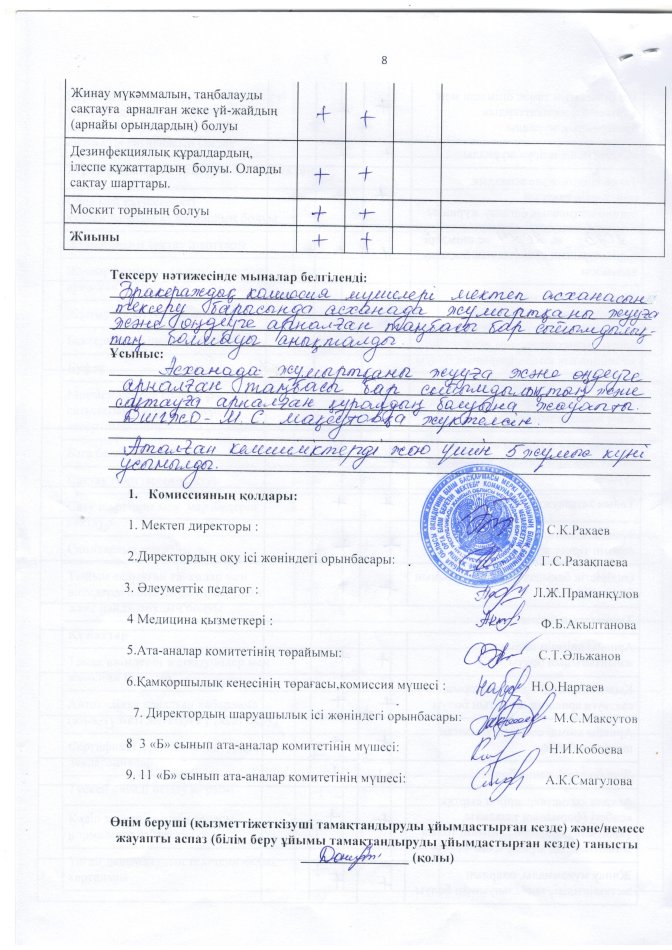 8
Жинау мүкәммалын, таңбалауды
сақтауға арналған жеке үй-жайдың
(арнайы орындардың) болуы
+ +
Дезинфекциялық құралдардың,
ілеспе құжаттардың болуы. Оларды
сақтау шарттары.
+ +
Москит торының болуы + +
Жиыны + +
Тексеру нәтижесінде мыналар белгіленді:
комиссия мүшелері мектеп асханасын
тексеру барысында асханада жұмыртқаны жууға
және өңдеуге арналған таңбасы бар сыйымдылық-
тың болмауы анықталды.
Ұсыныс:
Асханада жұмыртқаны жууға және өңдеуге
арналған таңбасы бар сыйымдылықтың және
сақтауға арналған құралдың болуына жауапты
М.С. жүктелсін.
Аталған кемшіліктерді жою үшін 5 жұмыс күні
ұсынылды.
1. Комиссияның қолдары:
1. Мектеп директоры : С.К.Рахаев
2.Директордың оқу ісі жөніндегі орынбасары: Г.С.Разақпаева
3. Әлеуметтік педагог : Л.Ж.Праманқұлов
4 Медицина қызметкері : Ф.Б.Акылтанова
5.Ата-аналар комитетінің төрайымы: С.Т.Әльжанов
6.Қамқоршылық кеңесінің төрағасы,комиссия мүшесі : Н.О.Нартаев
7. Директордың шаруашылық ісі жөніндегі орынбасары: М.С.Максутов
8 3 «Б» сынып ата-аналар комитетінің мүшесі: Н.И.Кобоева
9. 11 «Б» сынып ата-аналар комитетінің мүшесі: А.К.Смагулова
Өнім беруші (қызметтіжеткізуші тамақтандыруды ұйымдастырған кезде) және/немесе
жауапты аспаз (білім беру ұйымы тамақтандыруды ұйымдастырған кезде) танысты
(қолы)